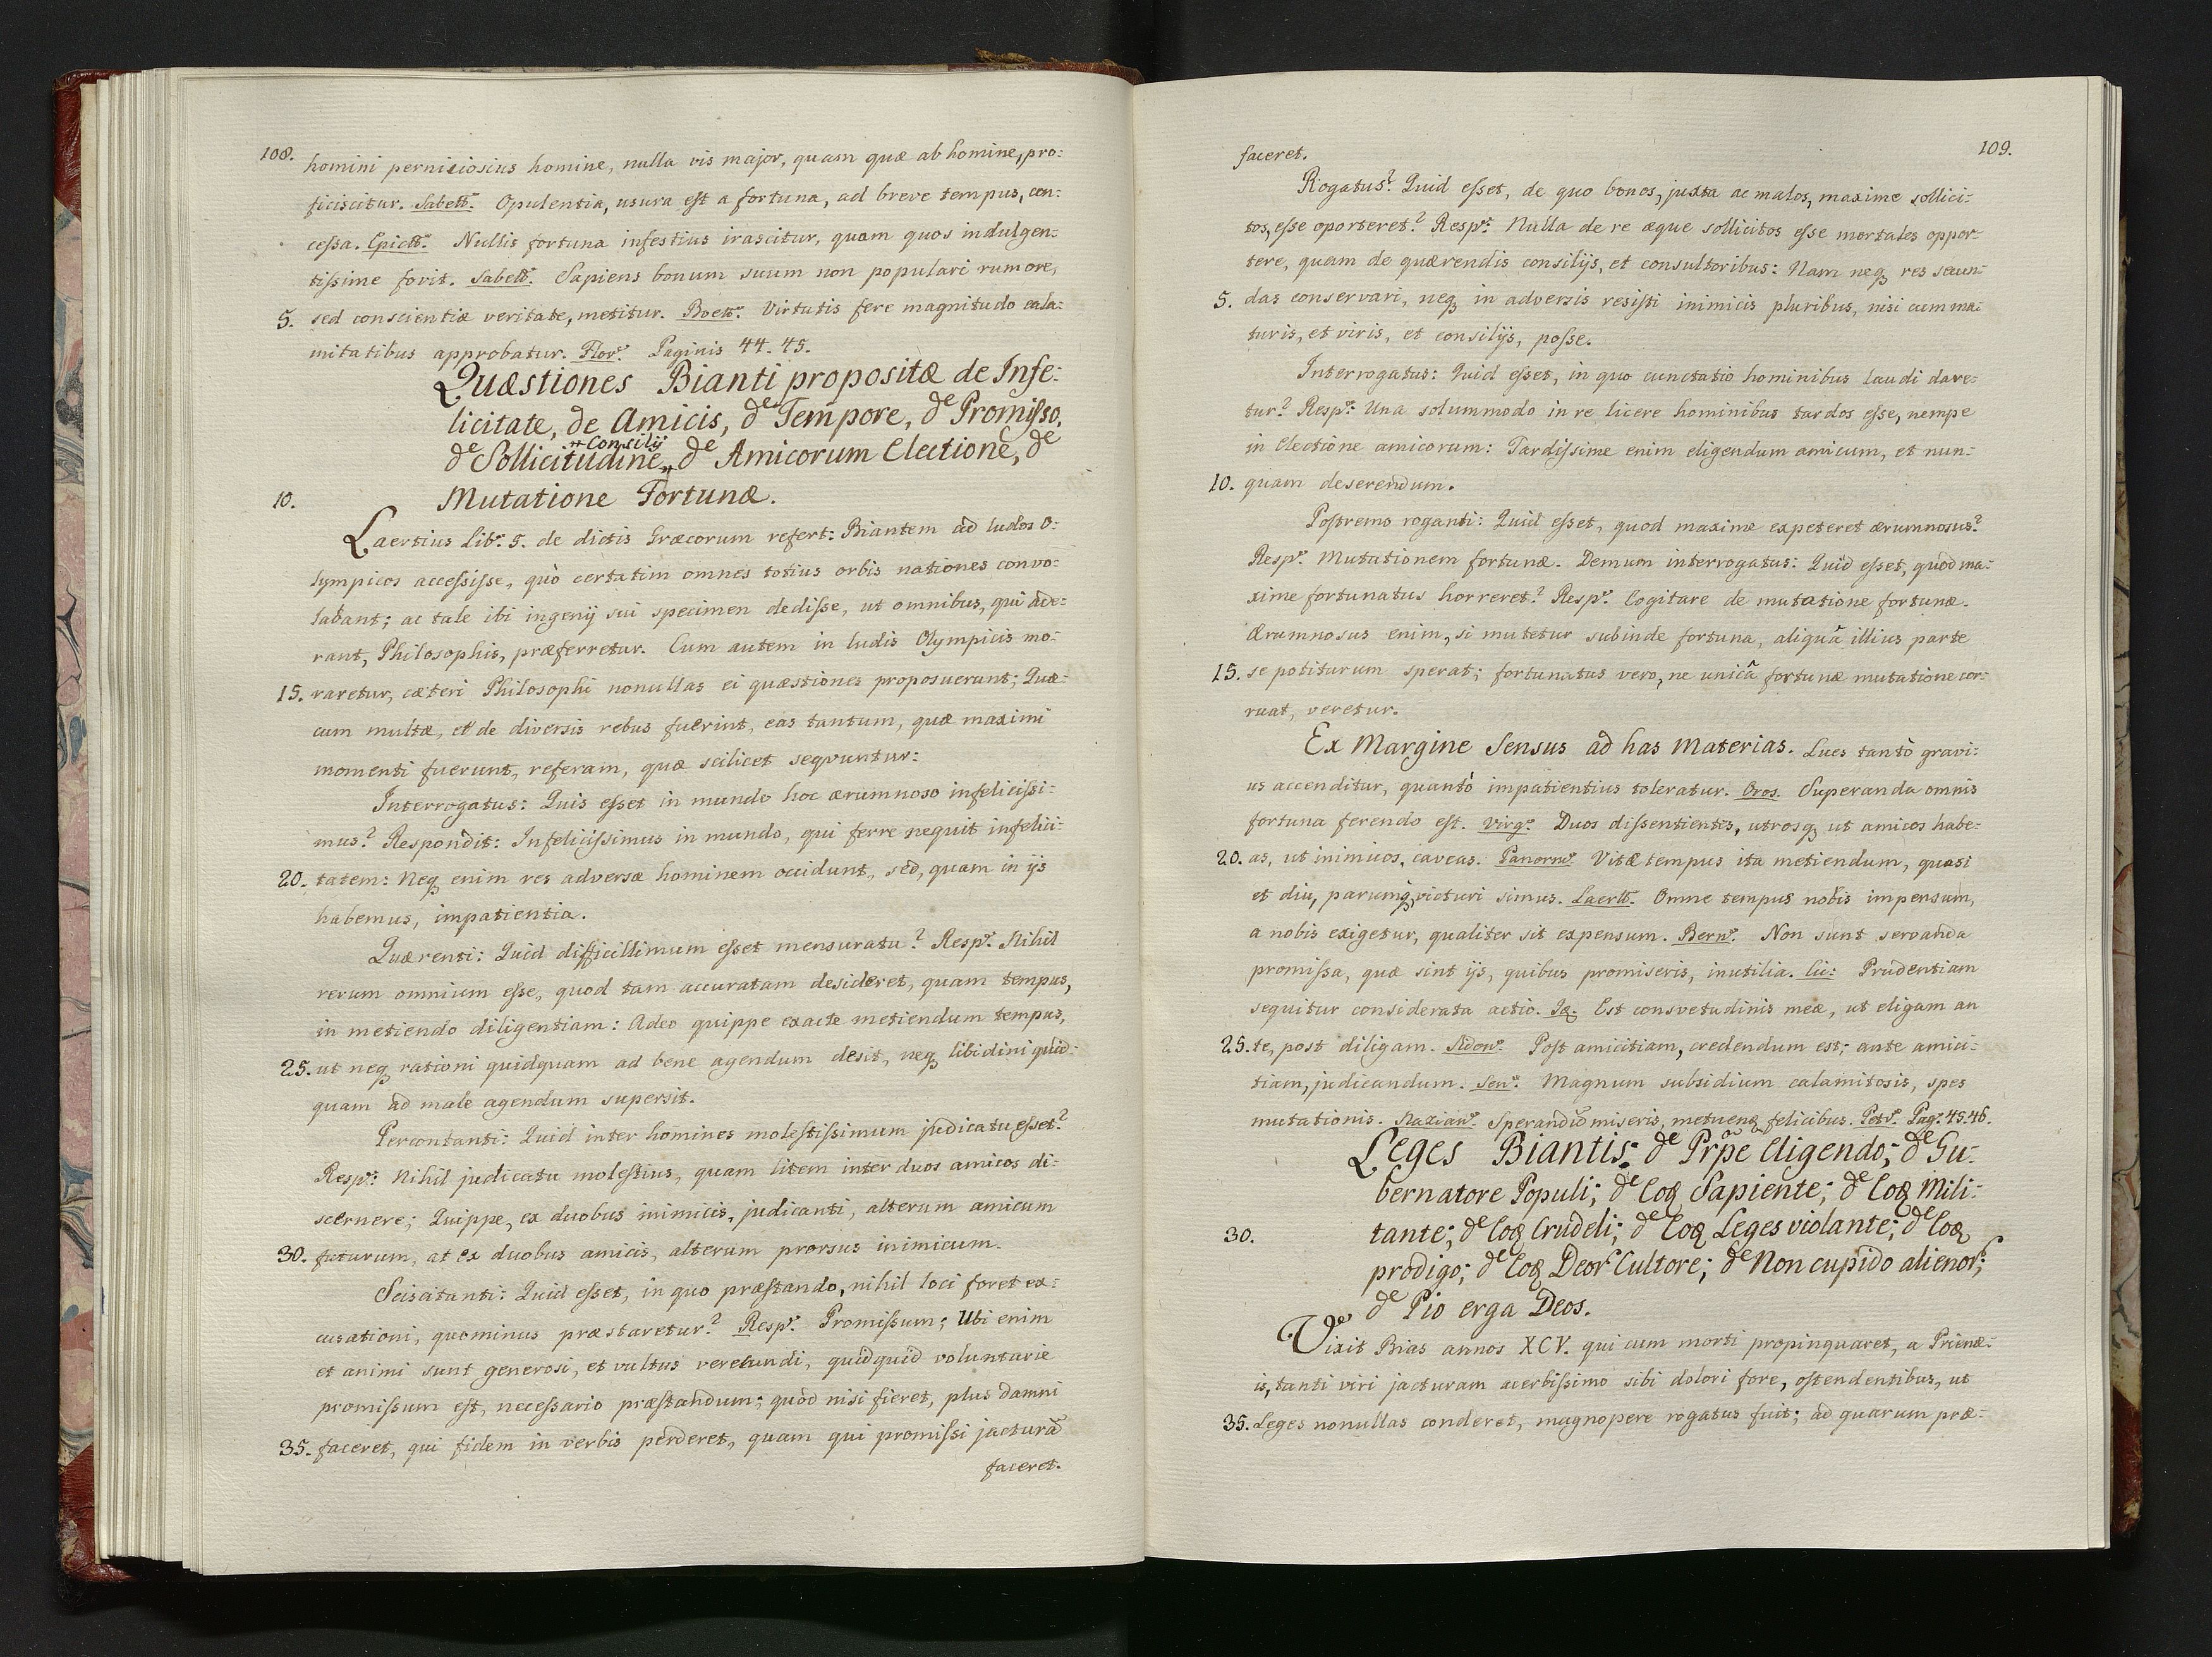 108.
homini perniciosius homine, nulla vis major, quam quæ ab homine, pro:
ficiscitur. Sabell: Opulentia, usura est a fortuna, ad breve tempus, con:
cessa. Epictt: Nullis fortuna infestius irascitur, quam quos indulgen:
tissime fovit. Sabell: Sapiens bonum suum non populari rumore,
5. sed conscientiæ veritate, metitur. Boett: Virtutis fere magnitudo cala:
mitatibus approbatur. Flor: Paginis 44. 45.
Quæstiones Bianti propositæ de Infe:
licitate, de Amicis, de Tempore, de Promisso,
de Sollicitudine Consilij, de Amicorum Electione, de
10. Mutatione Fortunæ.
Laertius Lib: 5. de dictis Græcorum refert: Biantem ad ludos O:
lympicos accessisse, quò certatim omnes totius orbis nationes convo:
labant; ac tale ibi ingenij sui specimen dedisse, ut omnibus, qui ade:
rant, Philosophis, præferretur. Cum autem in ludis Olympicis mo:
15. raretur, cæteri Philosophi nonullas ei quæstiones proposuerunt; Quæ:
cum multæ, et de diversis rebus fuerint, eas tantum, quæ maximi
momenti fuerunt, referam, quæ scilicet seqvuntur:
Interrogatus: Quis esset in mundo hoc ærumnoso infelicissi:
mus? Respondit: Infelicissimus in mundo, qui ferre nequit infelici:
20. tatem: Neq enim res adversæ hominem occidunt, sed, quam in ijs
habemus, impatientia.
Quærenti: Quid difficillimum esset mensuratu? Resp: Nihil
rerum omnium esse, quod tam accuratam desideret, quam tempus,
in metiendo diligentiam: Adeo quippe exacte metiendum tempus,
25. ut neq rationi quidquam ad bene agendum desit, neq libidini quid:
quam ad male agendum supersit.
Percontanti: Quid inter homines molestissimum judicatu esset?
Resp: Nihil judicatu molestius, quam litem inter duos amicos di:
scernere; Quippe, ex duobus inimicis, judicanti, alterum amicum
30. futurum, at ex duobus amicis, alterum prorsus inimicum.
Sciscitanti: Quid esset, in quo præstando, nihil loci foret ex:
cusationi, quominus præstaretur? Resp: Promissum; Ubi enim
et animi sunt generosi, et vultus verecundi, quidquid voluntarie
promissum est, necessario præstandum; quòd nisi fieret, plus damni
35. faceret, qui fidem in verbis perderet, quam qui promissi jacturã
faceret.
109.
faceret.
Rogatus? Quid esset, de quo bonos, juxta ac malos, maxime sollici:
tos, esse oporteret? Resp: Nulla de re æque sollicitos esse mortales oppor:
tere, quam de quærendis consilijs, et consultoribus: Nam neq res secun:
5. das conservari, neq in adversis resisti inimicis pluribus, nisi cum ma:
turis, et viris, et consilijs, posse.
Interrogatus: Quid esset, in quo cunctatio hominibus laudi dare:
tur? Resp: Una solummodo in re licere hominibus tardos esse, nempe
in Electione amicorum: Tardissime enim eligendum amicum, et nun:
10. quam deserendum.
Postremo roganti: Quid esset, quod maxime expeteret ærumnosus?
Resp: Mutationem fortunæ. Demum interrogatus: Quid esset, quod ma:
xime fortunatus horreret? Resp: Cogitare de mutatione fortunæ.
Ærumnosus enim, si mutetur subinde fortuna, aliquâ illius parte
15. se potiturum sperat; fortunatus vero, ne unicâ fortunæ mutatione cor:
ruat, veretur.
Ex Margine Sensus ad has Materias. Lues tantò gravi:
us accenditur, quantò impatientius toleratur. Oros. Superanda omnis
fortuna ferendo est. Virg: Duos dissentientes, utrosq ut amicos habe:
20. as, ut inimicos, caveas. Panorm: Vitæ tempus ita metiendum, quasi
et diu, parumq, victuri simus. Laertt: Omne tempus nobis impensum,
a nobis exigetur, qualiter sit expensum. Bern: Non sunt servanda
promissa, quæ sint ijs, quibus promiseris, inutilia. Cic: Prudentiam
sequitur considerata actio. Id. Est consvetudinis meæ, ut eligam an
25. te, post diligam. Sidon: Post amicitiam, credendum est; ante amici:
tiam, judicandum. Sen: Magnum subsidium calamitosis, spes
mutationis. Nazian: Sperandũ miseris, metuenq felicibus. Petr: Pag: 45. 46.
Leges Biantis: de Prpe Eligendo; de Gu:
bernatore Populi; de Eoq Sapiente; de Eoq Mili:
30. tante; de Eoq Crudeli; de Eoq Leges violante; de Eoq
prodigo; de Eoq Deor Cultore; de Non cupido alienor;
de Pio erga Deos.
Vixit Bias annos XCV. qui cum morti propinquaret, a Prienæ:
is, tanti viri jacturam acerbissimo sibi dolori fore, ostendentibus, ut
35. Leges nonullas conderet, magnopere rogatus fuit; ad quarum præ: